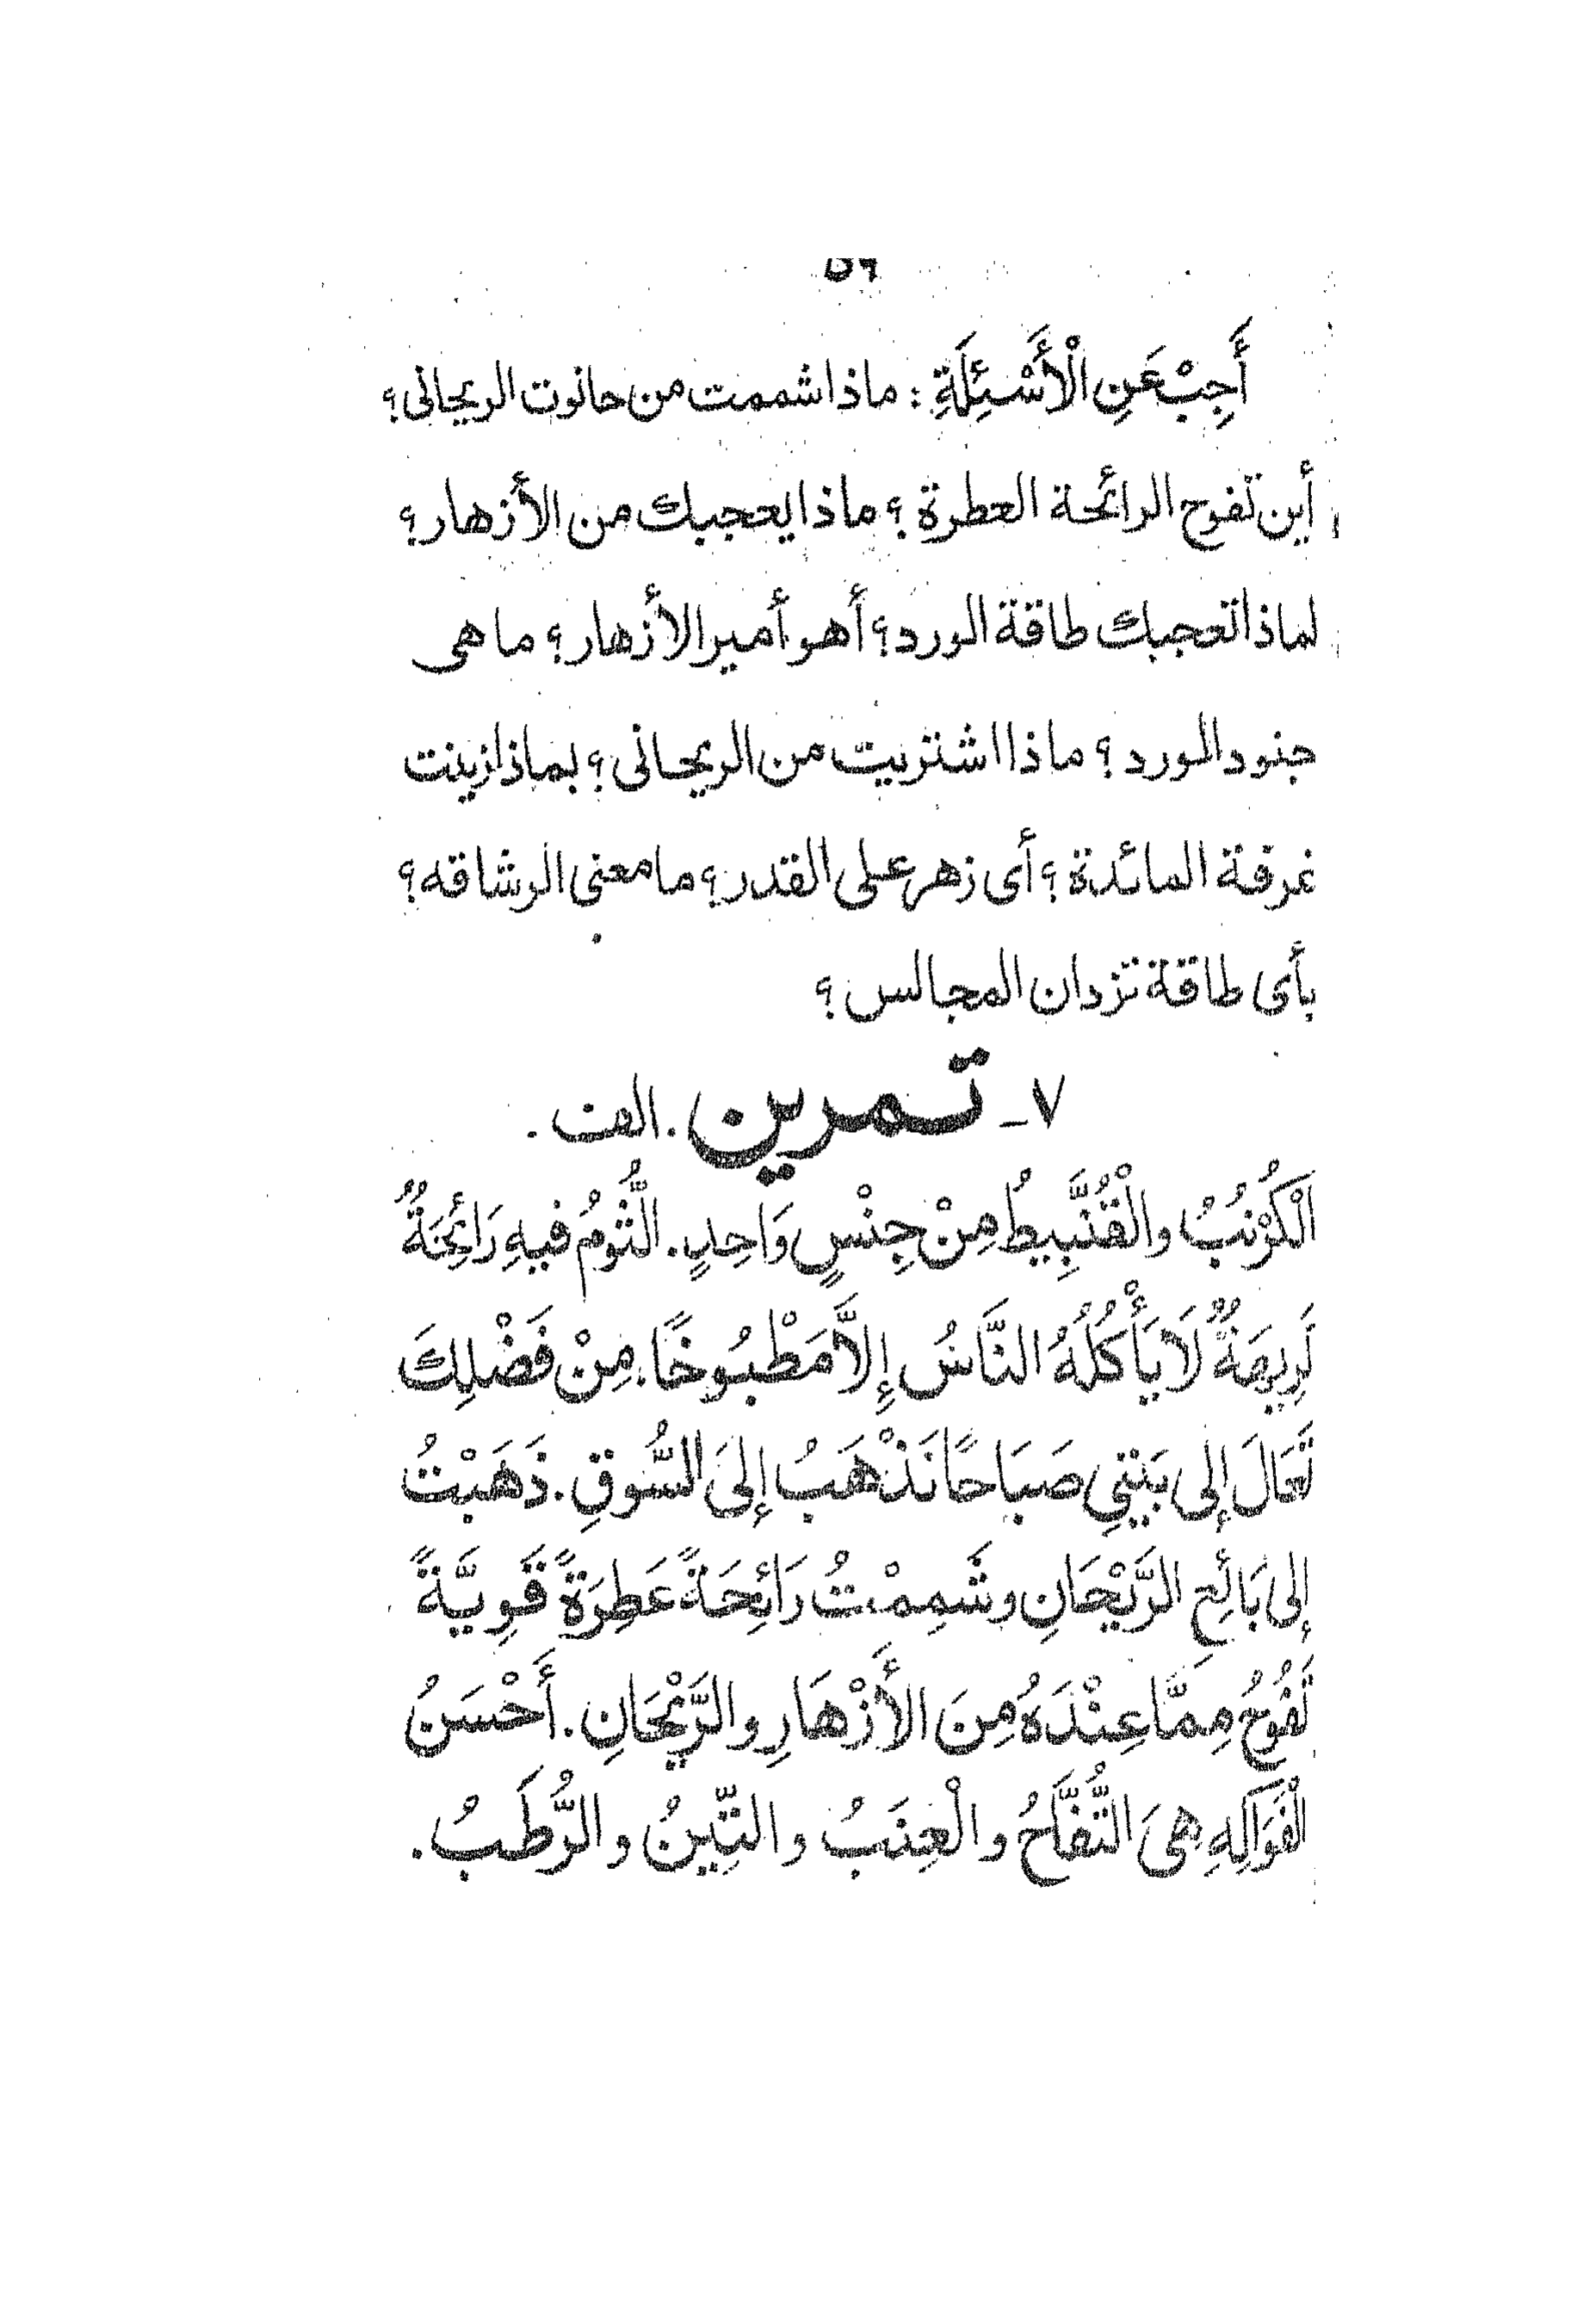 ٥٦
أَجِبْ عَنِ الْأَسْئِلَةِ : ماذا شممت من حانوت الريحانى ؟
أين تفوح الرائحة العطرة ؟ ماذا يعجبك من الأزهار ؟
لماذا تعجبك طاقة الورد ؟ أهو أمير الأزهار ؟ ما هى
جنود الورد ؟ ماذا اشتريت من الريحانى ؟ بماذا زينت
غرفة المائدة ؟ أى زهر على القدر ؟ ما معنى الرشاقه ؟
بأى طاقة تزدان المجالس ؟
٧ - تمرين . الفت .
اَلْكُرُنْبُ والْقُنَّبِيطُ مِنْ جِنْسٍ وَاحِدٍ . الثُّومُ فِيهِ رَائِحَةٌ
كَرِيهَةٌ لَا يَأْكُلُهُ النَّاسُ إِلاَّ مَطْبُوخًا . مِنْ فَضْلِكَ
تَعَالَ إِلى بَيْتِي صَبَاحًا نَذْهَبُ إِلىَ السُّوقِ . ذَهَبْتُ
إِلى بَائِعِ الرَّيْحَانِ وشَمِمْتُ رَائِحَةً عَطِرَةً قَوِيَّةً
تَفُوحُ مِمَّا عِنْدَهُ مِنَ الأَزْهَارِ والرَّيْحَانِ . أَحْسَنُ
الْفَوَاكِهِ هِىَ التُّفَّاحُ والْعِنَبُ والتِّينُ والرُّطَبُ .